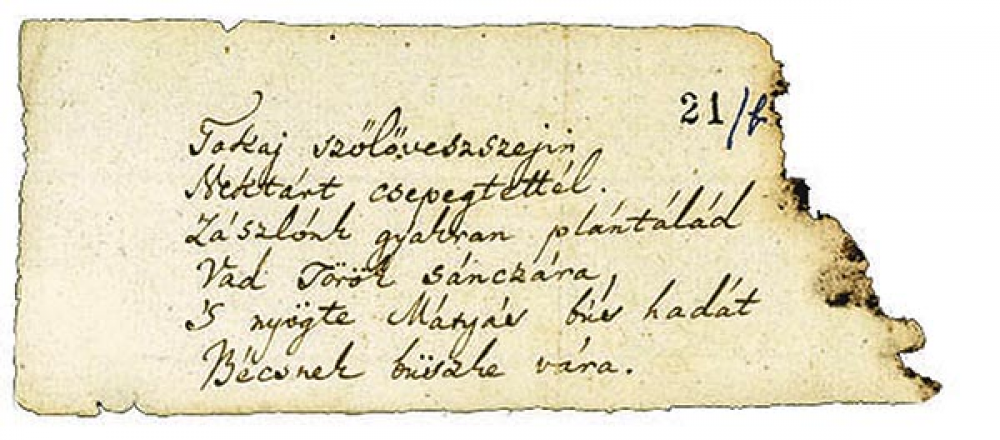 21/b
Tokaj szőlőveszszejin
Nektárt csepegtettél.
Zászlónk gyakran plántálád
Vad Török sánczára,
'S nyögte Mátyás bús hadát
Bécsnek büszke vára.